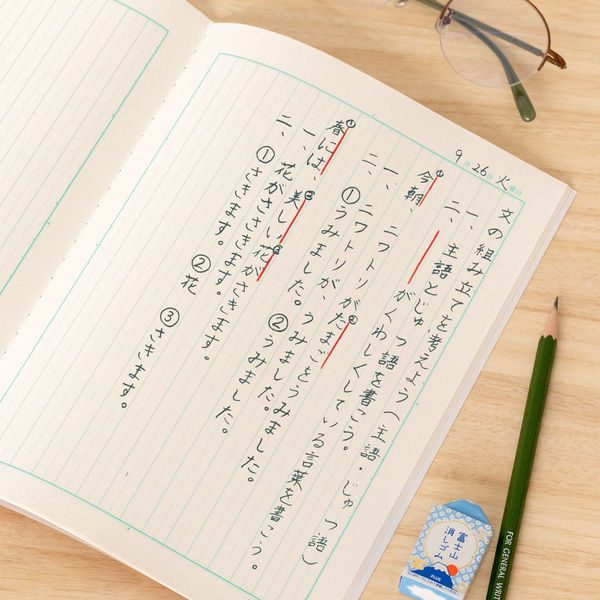 9月26日火曜日
文の組み立てを考えよう(主語・じゅつ語)
一、主語とじゅつ語を書こう。
二、がくわしくしている言葉を書こう。
①今朝、ニワトリが②たまごをうみました。
一、ニワトリが、うみました。
二、①うみました。②うみました。
①春には、②美しい③花がさきます。
一、花がさきます。
二、①さきます。②花 ③さきます。
富士山
消しゴム
PLUS
FOR GENERAL WRIT